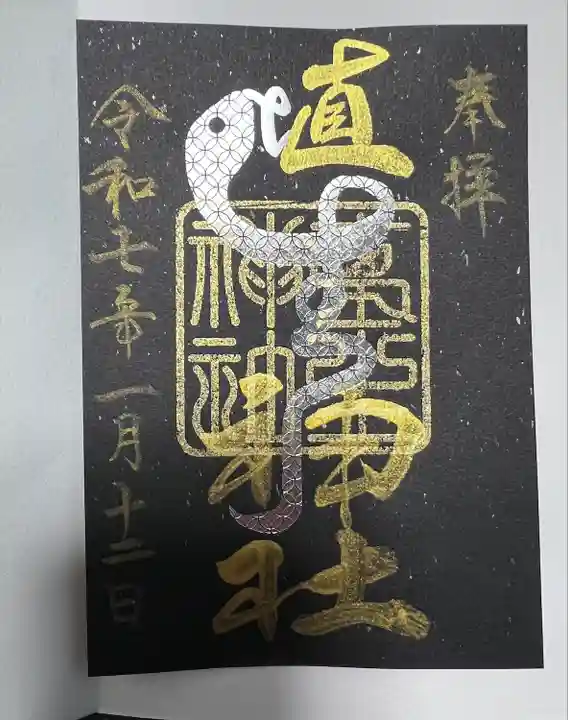 奉拝
直
神社
令和七年一月十二日
神社